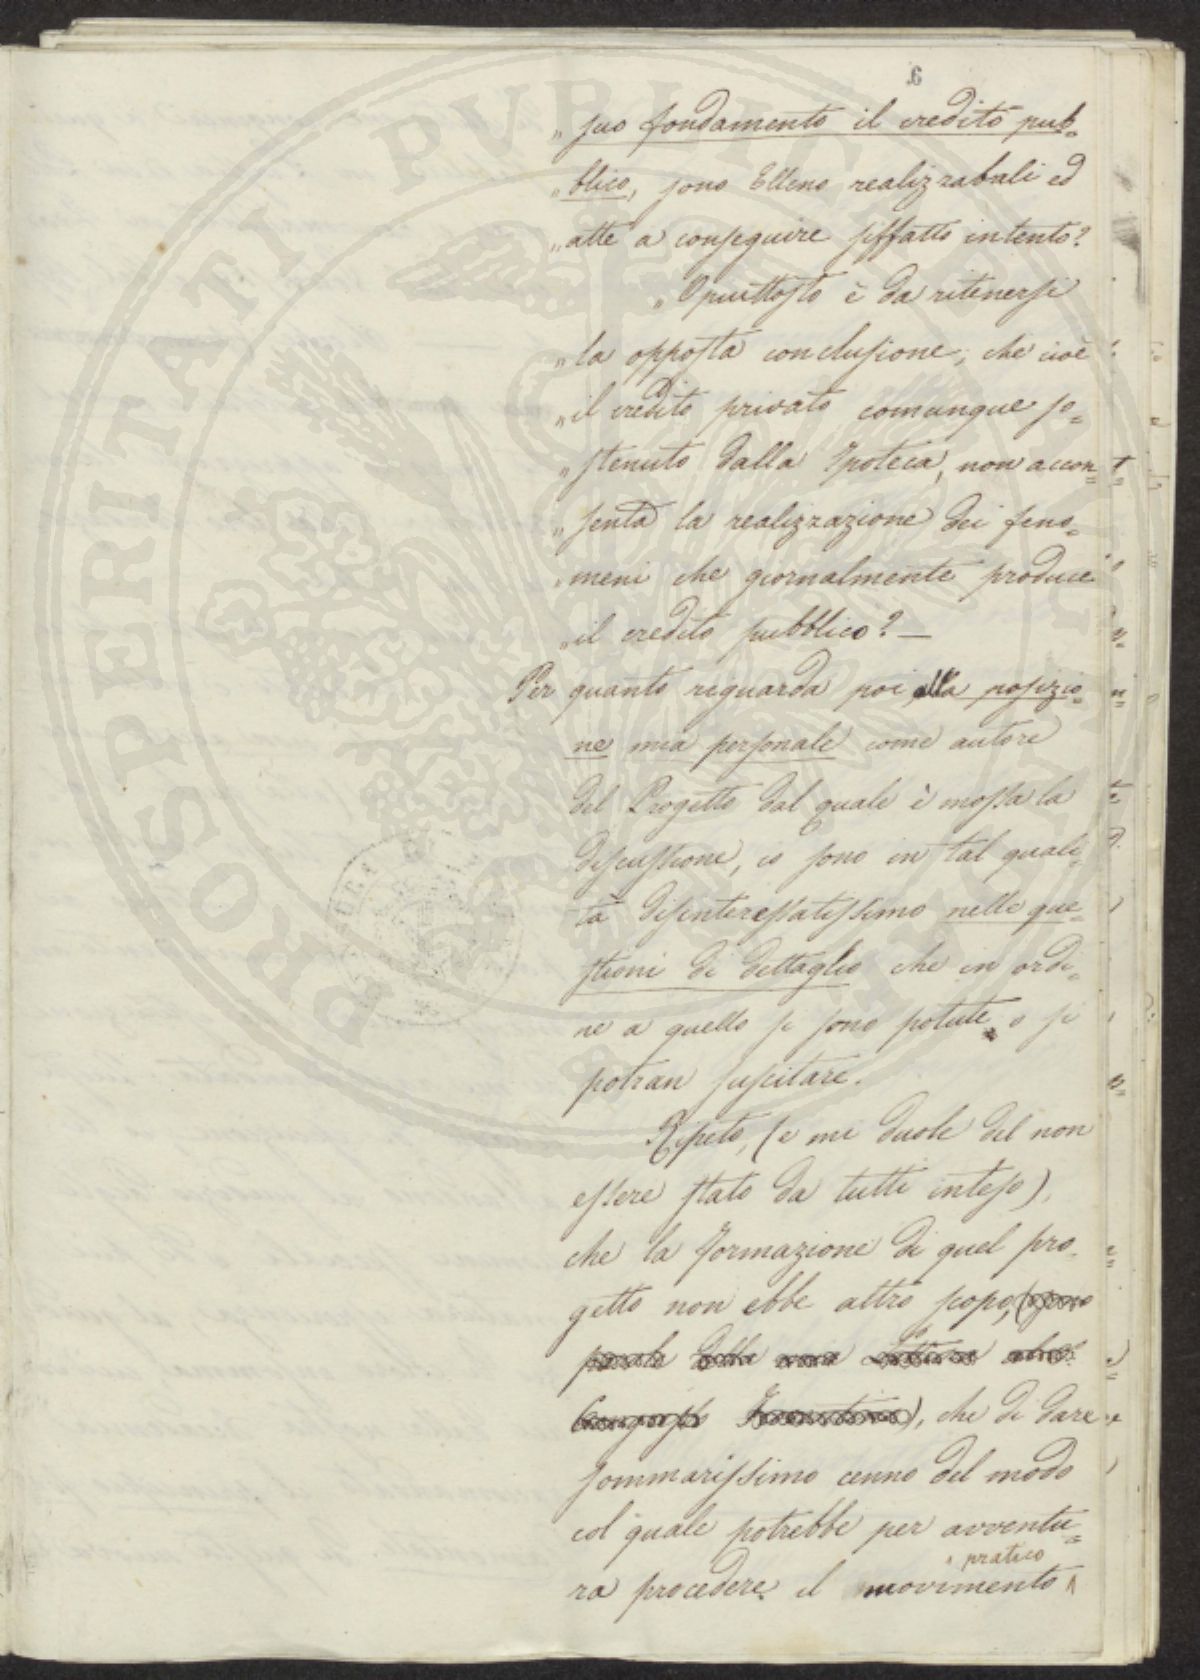 6
„ suo fondamento il credito pub=
„ blico, sono Elleno realizzabali ed
„ atte a conseguire siffatto intento?
„ O piuttosto è da ritenersi
„ la opposta conclusione, che cioè
„ il credito privato comunque so=
„ stenuto dalla Ipoteca, non accon=
„ senta la realizzazione dei feno=
„ meni che giornalmente produce
„ il credito pubblico? —
Per quanto riguarda poi alla posizio=
ne mia personale come autore
del Progetto dal quale è mossa la
discussione, io sono in tal quali=
tà disinteressatissimo nelle que=
stioni di dettaglio che in ordi=
ne a quello si sono potute o si
potran suscitare.
Ripeto, (e mi duole del non
essere stato da tutti inteso),
che la formazione di quel pro=
getto non ebbe altro scopo, (sono
parole della mia Lettera al
), che di dare
sommarissimo cenno del modo
col quale potrebbe per avventu=
pratico
ra procedere il movimento
PROSPERITATI PUBLICAE